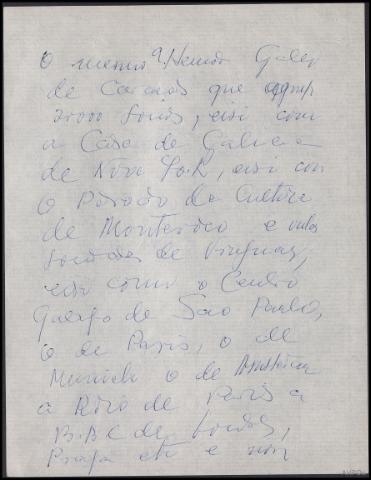 O mesmo q. Hemos Galego
de Caracas que agrup
20000 socios, eisi como
a Casa de Galicia
de Nova York, eisi con
o Patronato da Cultura
de Montevideo e outras
sociedades de Uruguay,
eisi como o Centro
Galego de Sao Paulo,
o de Paris, o de
Munich o de Amsterdam
a Radio de Paris a
B.B.C de Londres,
Praga etc e non